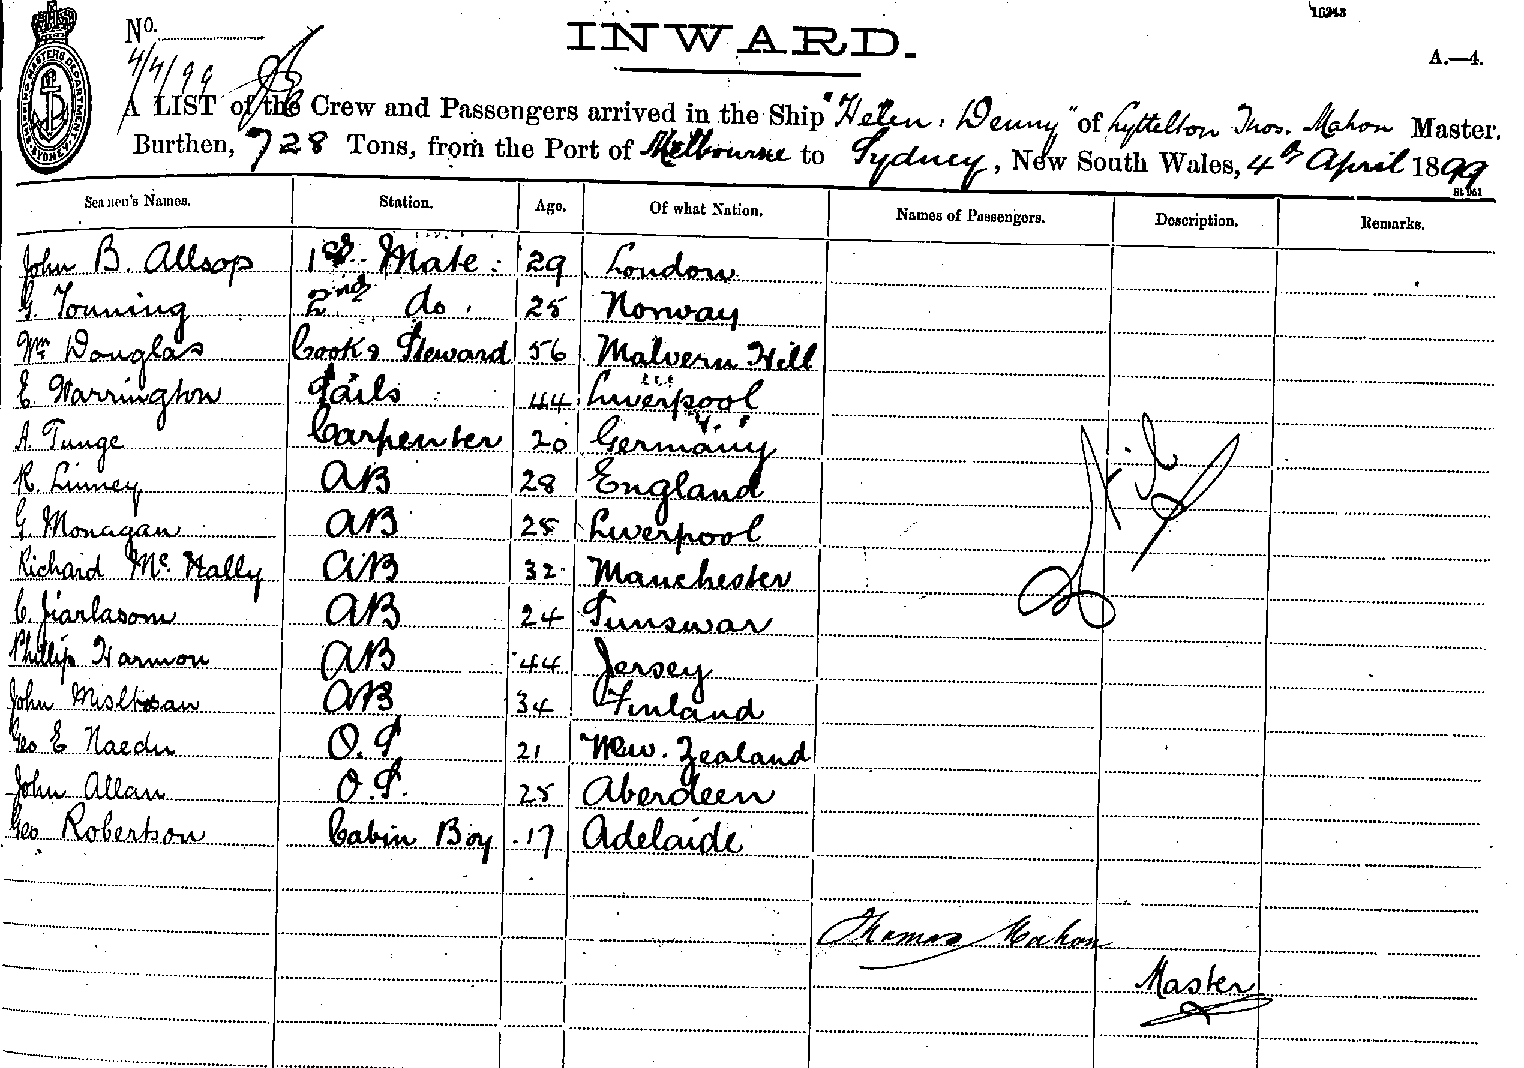 16243
No.
INWARD.
A.—4.
4/4/99
A LIST of the Crew and Passengers arrived in the Ship "Helen Denny" of Lyttelton Thos. Mahon Master.
Burthen, 728 Tons, from the Port of Melbourne to Sydney, New South Wales, 4th April 1899
Seamen's Names. Station. Age. Of what Nation. Names of Passengers. Description. Remarks.
John B. Allsop 1st Mate 29 London
G. Tonning 2nd do. 25 Norway
Wm Douglas Cook & Steward 56 Malvern Hill
E Warrington Sails 44 Liverpool
A. Tunge Carpenter 20 Germany
R. Linney AB 28 England
G. Monagan AB 25 Liverpool
Richard Mc Nally AB 32 Manchester
C. AB 24
Phillip Harmon AB 44 Jersey
John AB 34 Finland
Geo E O.S 21 New Zealand
John Allan O.S. 25 Aberdeen
Geo Robertson Cabin Boy 17 Adelaide
Nil
Thomas Mahon
Master